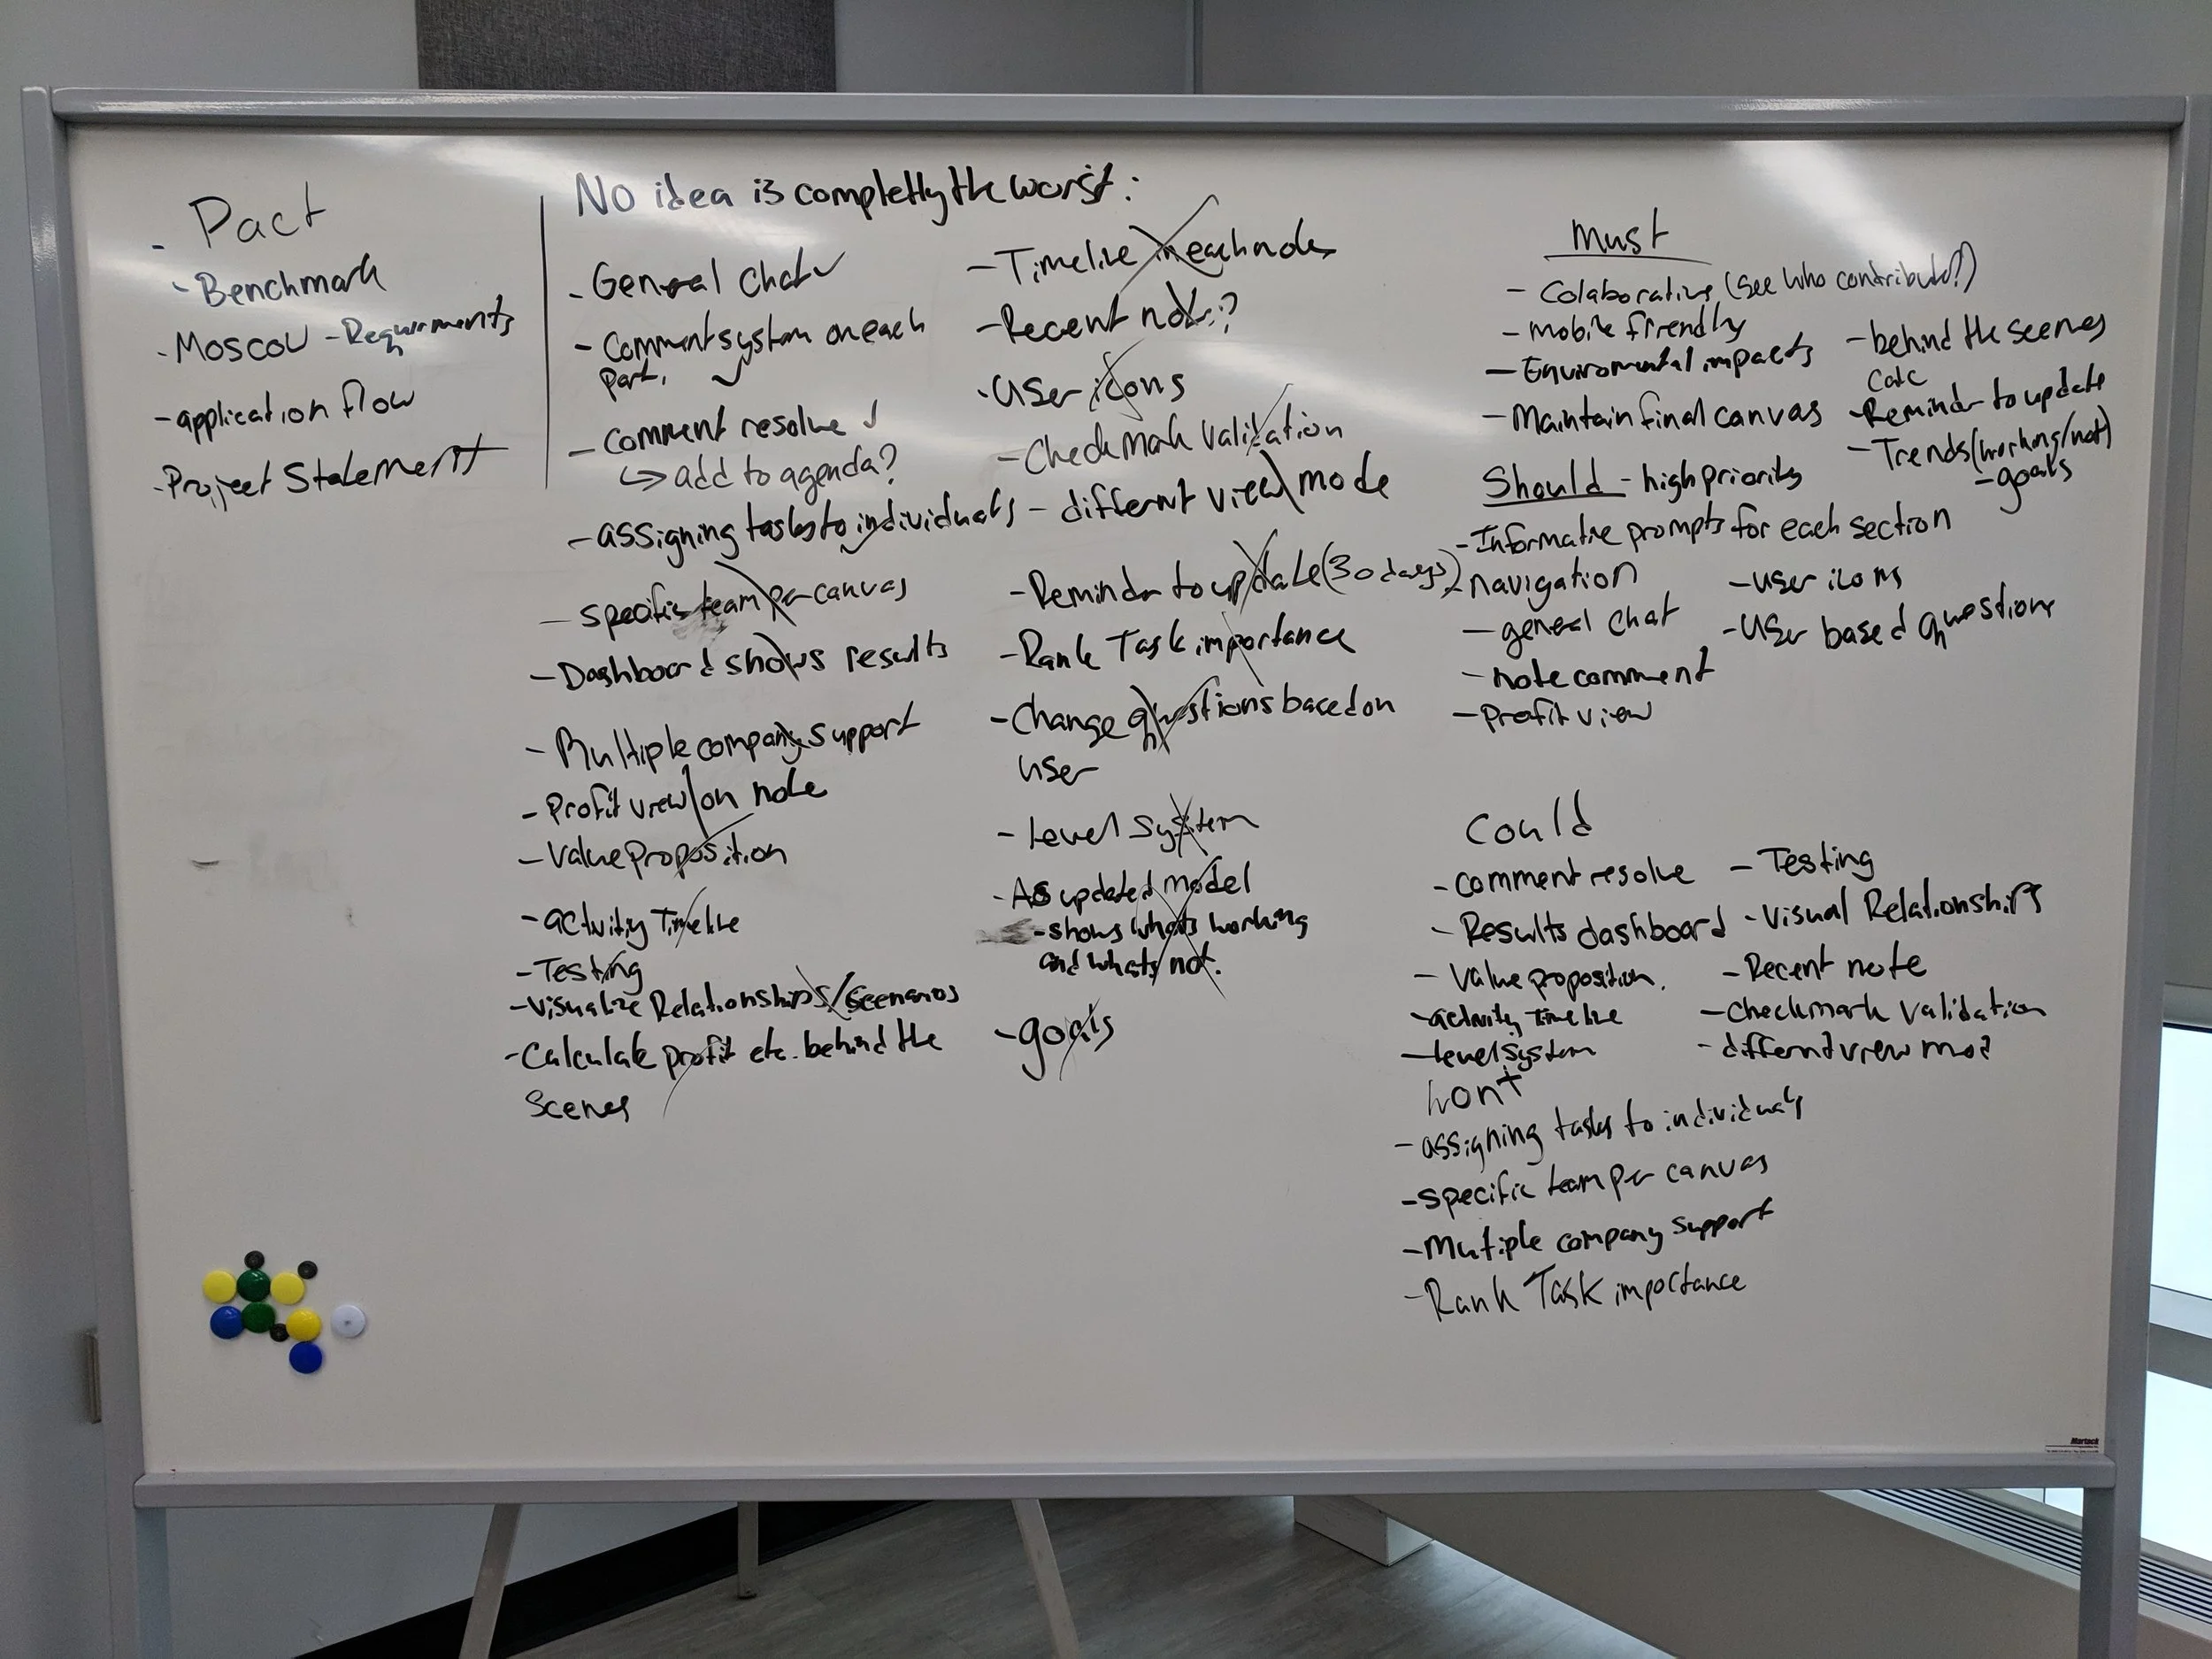 Pact
- Benchmark
- Moscow - Requirments
- application flow
- Project Statement
No idea is completly the worst:
- General Chat ✓
- Comment system on each
part. ✓
- comment resolve ✓
↳ add to agenda?
- assigning tasks to individuals
- specific team per canvas
- Dashboard shows results
- Multiple company support
- Profit view on note
- Value proposition
- activity Timeline
- Testing
- Visualize Relationships/scenarios
- Calculate profit etc. behind the
Scenes
- Timeline in each node
- Recent note?
- User icons
- Checkmark Validation
- different view mode
- Reminder to update (30 days)
- Rank Task importance
- Change questions based on
user
- Level System
- As updated model
- shows whats working
and whats not.
- goals
Must
- Colaborative (see who contributed?)
- mobile friendly
- Enviromental impacts
- Maintain final canvas
- behind the scenes
calc
- Reminder to update
- Trends (working/not)
- goals
Should - high priority
- Informative prompts for each section
- navigation
- general chat
- note comment
- Profit view
- user icons
- User based questions
Could
- comment resolve
- Results dashboard
- Value proposition.
- activity timeline
- level system
- Testing
- Visual Relationships
- Recent note
- Checkmark Validation
- different view mod
Wont
- assigning tasks to individuals
- specific team per canvas
- Multiple company support
- Rank Task importance